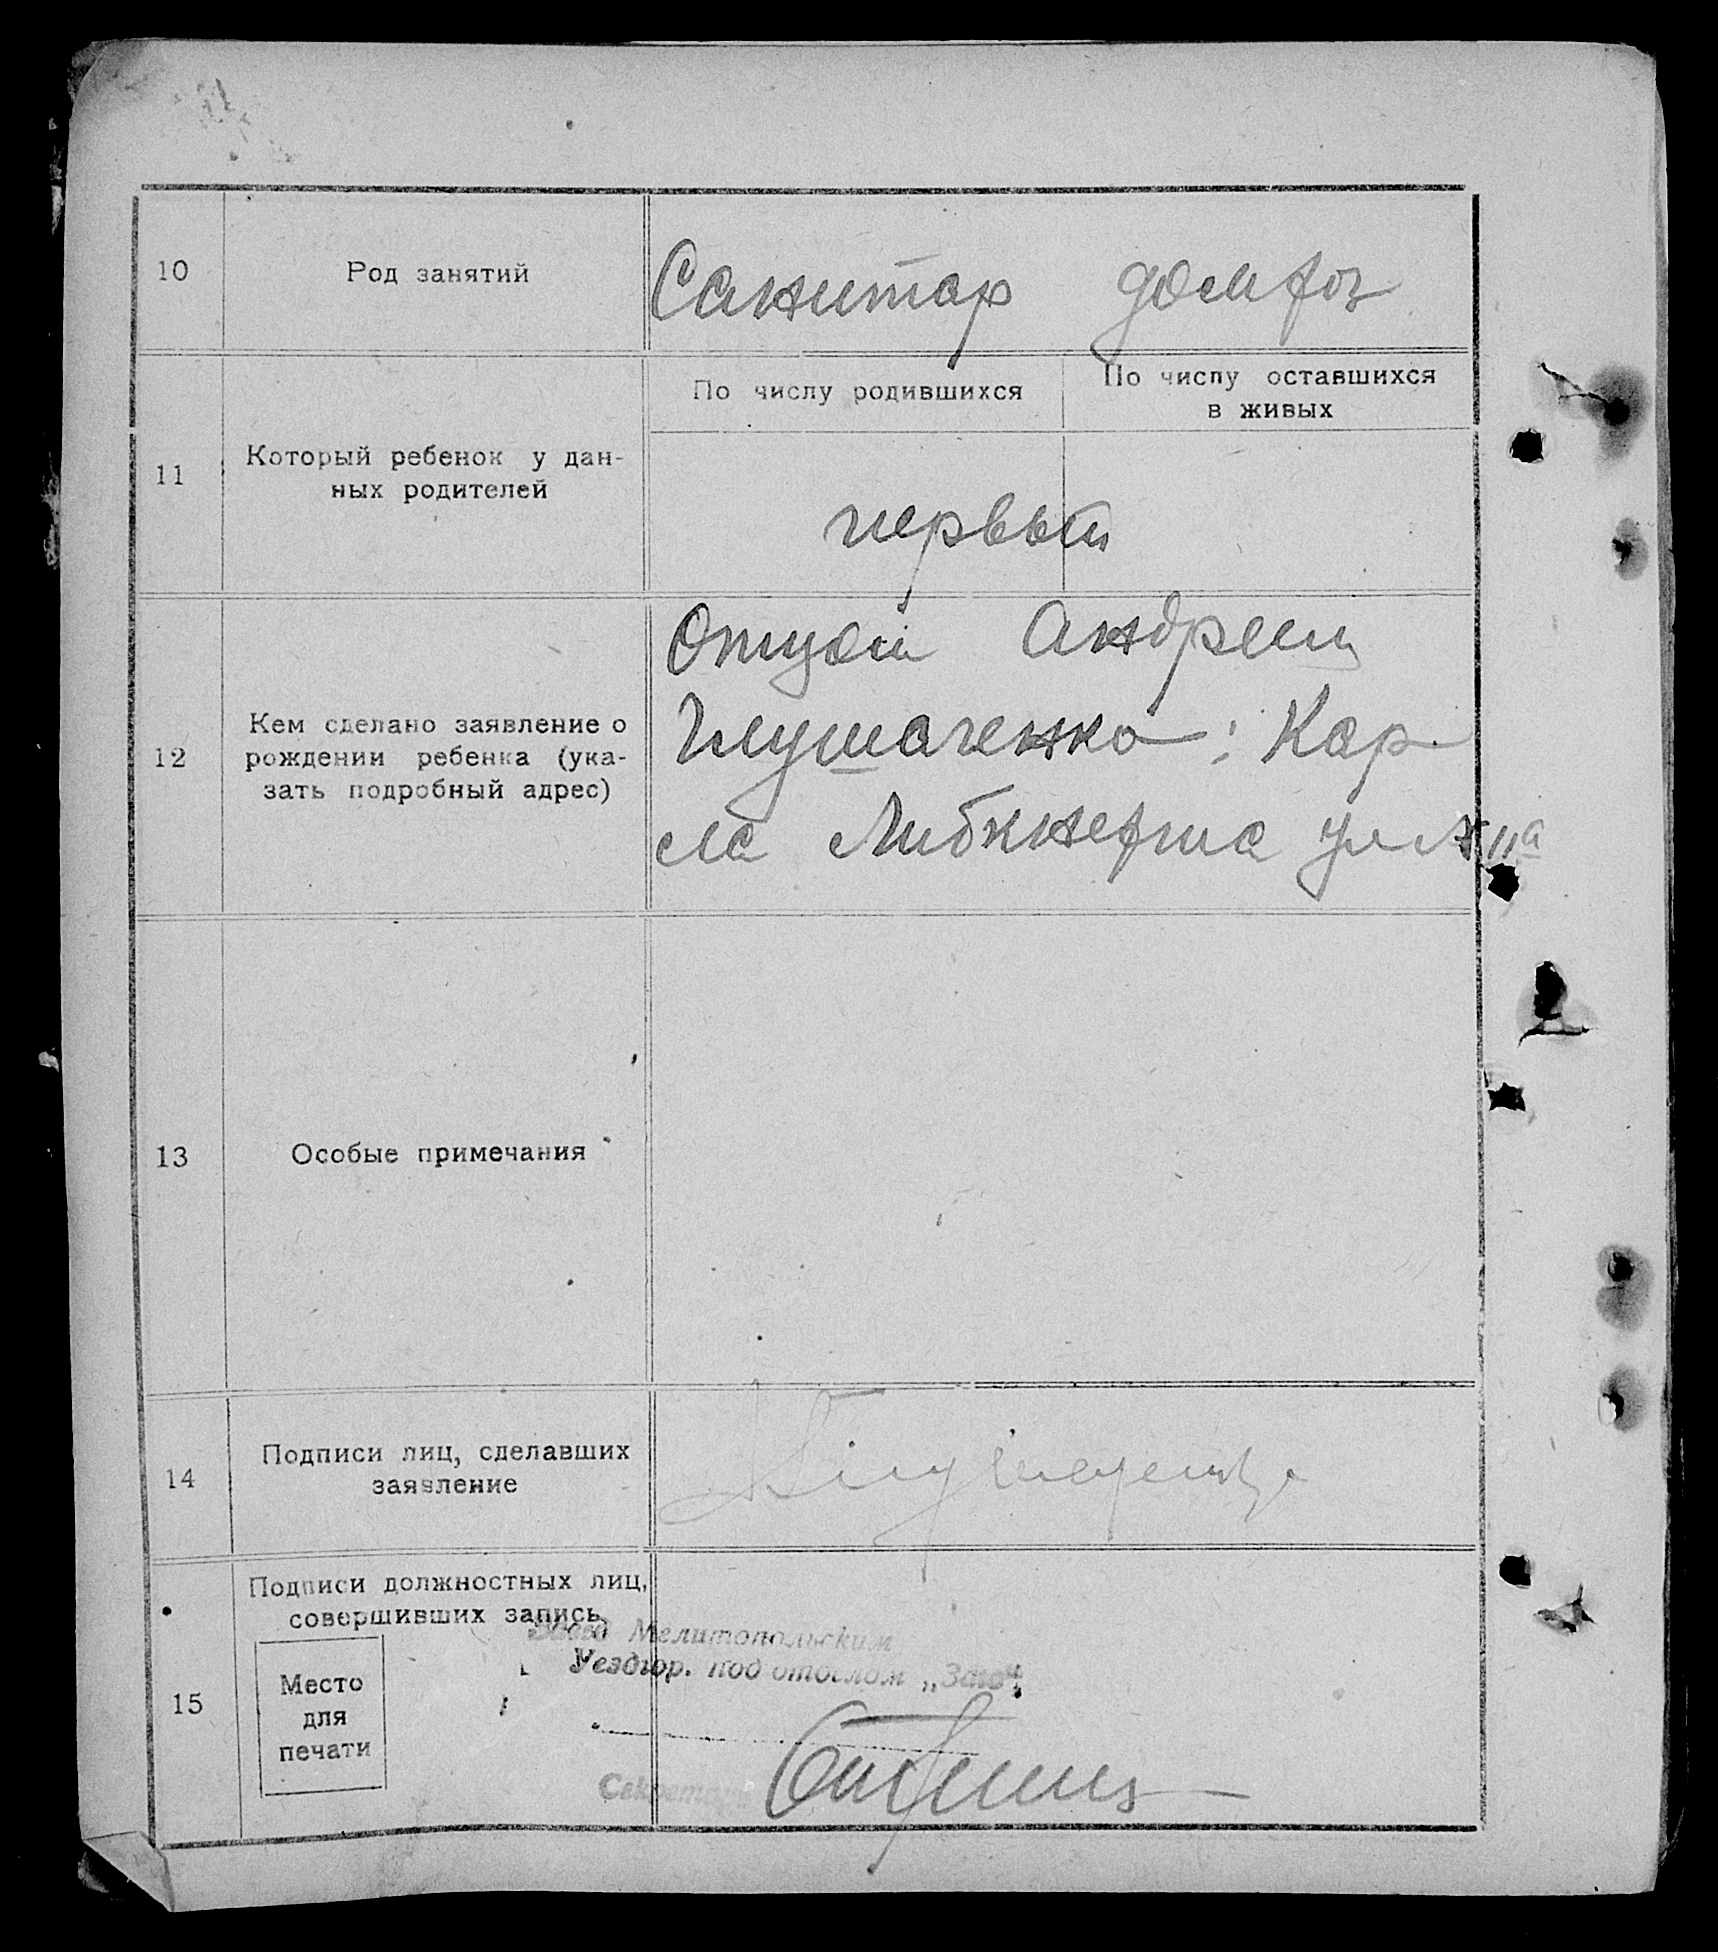 10 Род занятий Санитар
По числу родившихся По числу оставшихся
в живых
11 Который ребенок у дан-
ных родителей
первый
12 Кем сделано заявление о
рождении ребенка (ука-
зать подробный адрес)
Отцом Андреем
Глушаченко: Кар
ла Либкнехта ул № 11а
13 Особые примечания
14 Подписи лиц, сделавших
заявление
15 Подписи должностных лиц,
совершивших запись
Место
для
печати
Завед Мелитопольским
Уездгор. под отделом „Загс"
Секретарь